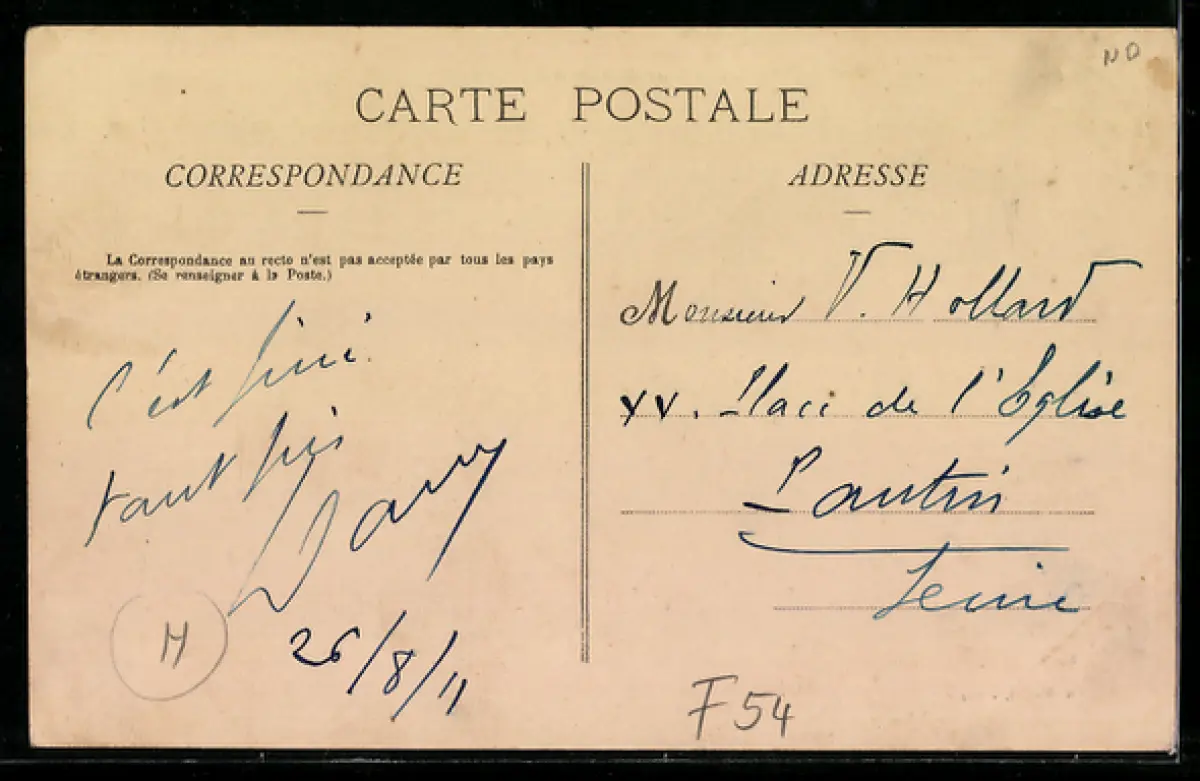 ND
CARTE POSTALE
CORRESPONDANCE
La Correspondance au recto n'est pas acceptée par tous les pays
étrangers. (Se renseigner à la Poste.)
C'est fini
tant pis
26/8/11
H
ADRESSE
Monsieur V. Hollard
Place de l'Eglise
Pantin
Seine
F54